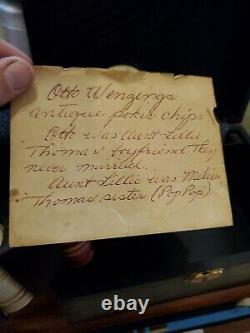 Otto Wenzings
antique poker chips
Otto was Aunt Lillie
Thomas' boyfriend they
never married.
Aunt Lillie was
Thomas' sister (Pop Pop)